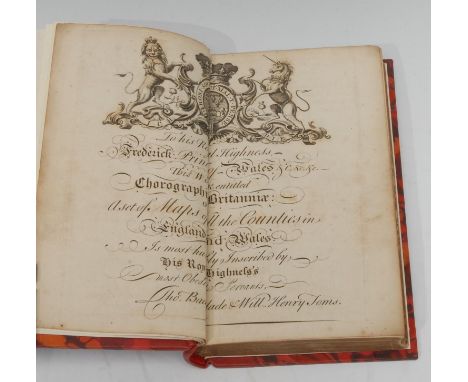 To his Royal Highness
Frederick Prince of Wales &c.&c.&c.
This W entitled
Chorograph Britanniæ:
A set of Maps of all the Counties in
England and Wales:
Is most humbly Inscribed by
His Royal Highness's
most Obedient Servants,
Tho. Badeslade & Will. Henry Toms.